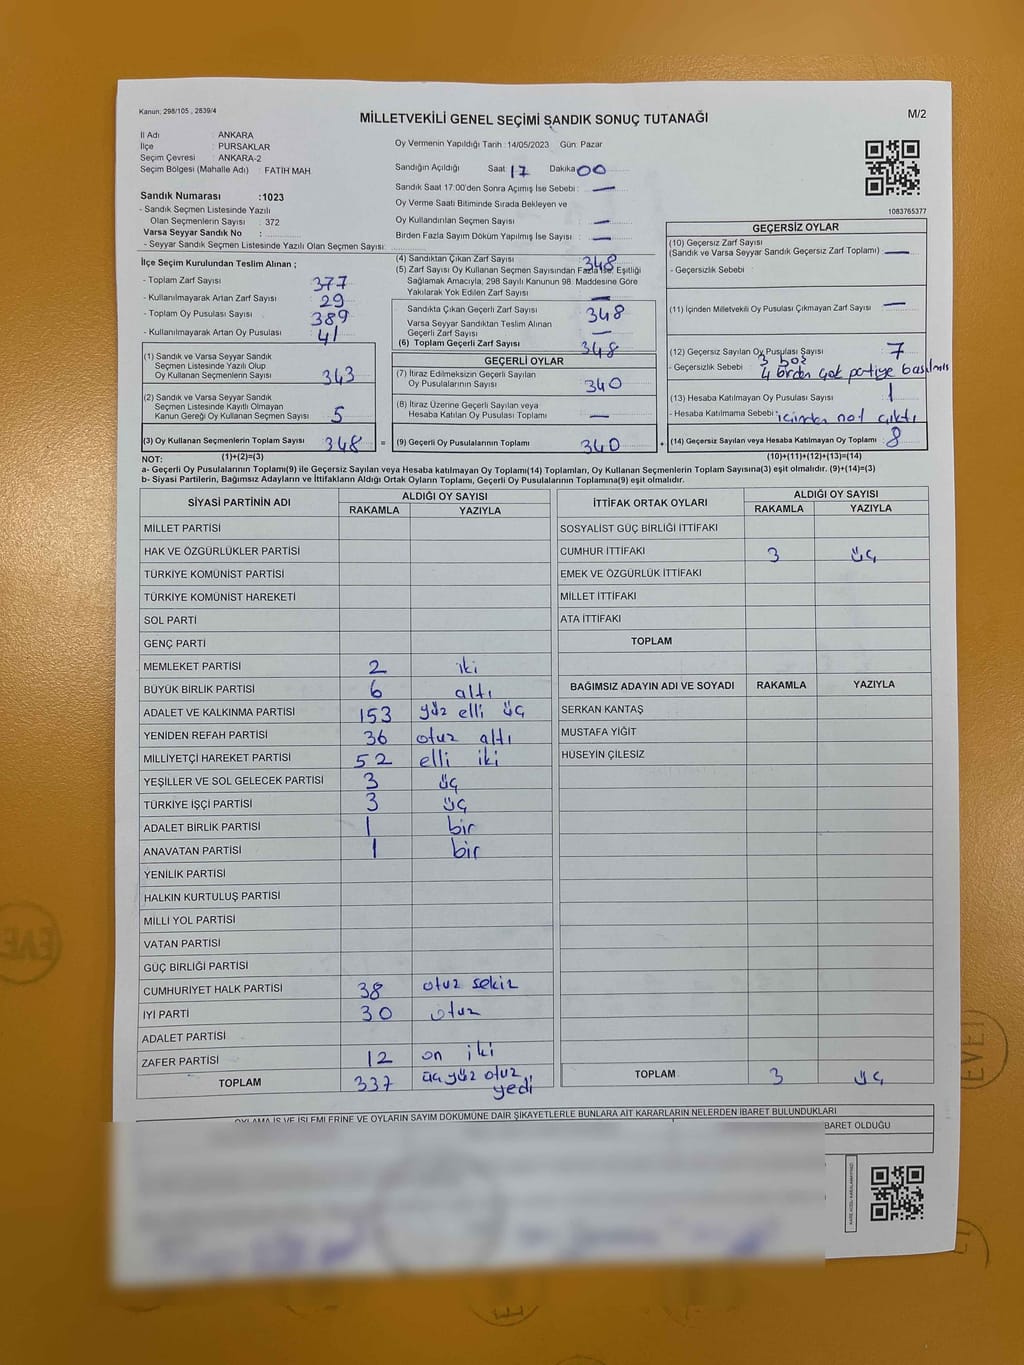 Kanun; 298/105 , 2839/4
MİLLETVEKİLİ GENEL SEÇİMİ SANDIK SONUÇ TUTANAĞI
M/2
İl Adı : ANKARA
İlçe : PURSAKLAR
Seçim Çevresi : ANKARA-2
Seçim Bölgesi (Mahalle Adı) : FATİH MAH
Sandık Numarası :1023
- Sandık Seçmen Listesinde Yazılı
Olan Seçmenlerin Sayısı : 372
Varsa Seyyar Sandık No :
- Seyyar Sandık Seçmen Listesinde Yazılı Olan Seçmen Sayısı:
Oy Vermenin Yapıldığı Tarih :14/05/2023 Gün: Pazar
Sandığın Açıldığı Saat 17 Dakika 00
Sandık Saat 17:00'den Sonra Açımış İse Sebebi : —
Oy Verme Saati Bitiminde Sırada Bekleyen ve
Oy Kullandırılan Seçmen Sayısı : —
Birden Fazla Sayım Döküm Yapılmış İse Sayısı : —
1083765377
İlçe Seçim Kurulundan Teslim Alınan ;
- Toplam Zarf Sayısı : 377
- Kullanılmayarak Artan Zarf Sayısı : 29
- Toplam Oy Pusulası Sayısı : 389
- Kullanılmayarak Artan Oy Pusulası : 41
(1) Sandık ve Varsa Seyyar Sandık
Seçmen Listesinde Yazılı Olup
Oy Kullanan Seçmenlerin Sayısı : 343
(2) Sandık ve Varsa Seyyar Sandık
Seçmen Listesinde Kayıtlı Olmayan
Kanun Gereği Oy Kullanan Seçmen Sayısı : 5
(3) Oy Kullanan Seçmenlerin Toplam Sayısı : 348 =
(1)+(2)=(3)
(4) Sandıktan Çıkan Zarf Sayısı : 348
(5) Zarf Sayısı Oy Kullanan Seçmen Sayısından Fazla İse, Eşitliği
Sağlamak Amacıyla, 298 Sayılı Kanunun 98. Maddesine Göre
Yakılarak Yok Edilen Zarf Sayısı : —
Sandıkta Çıkan Geçerli Zarf Sayısı : 348
Varsa Seyyar Sandıktan Teslim Alınan
Geçerli Zarf Sayısı : —
(6) Toplam Geçerli Zarf Sayısı : 348
GEÇERLİ OYLAR
(7) İtiraz Edilmeksizin Geçerli Sayılan
Oy Pusulalarının Sayısı : 340
(8) İtiraz Üzerine Geçerli Sayılan veya
Hesaba Katılan Oy Pusulası Toplamı : —
(9) Geçerli Oy Pusulalarının Toplamı : 340 +
GEÇERSİZ OYLAR
(10) Geçersiz Zarf Sayısı
(Sandık ve Varsa Seyyar Sandık Geçersiz Zarf Toplamı) : —
- Geçersizlik Sebebi :
(11) İçinden Milletvekili Oy Pusulası Çıkmayan Zarf Sayısı : —
(12) Geçersiz Sayılan Oy Pusulası Sayısı : 7
- Geçersizlik Sebebi : 3 boş
4 birden çok partiye basılmış
(13) Hesaba Katılmayan Oy Pusulası Sayısı : 1
- Hesaba Katılmama Sebebi : içinden not çıktı
(14) Geçersiz Sayılan veya Hesaba Katılmayan Oy Toplamı : 8
(10)+(11)+(12)+(13)=(14)
NOT:
a- Geçerli Oy Pusulalarının Toplamı(9) ile Geçersiz Sayılan veya Hesaba katılmayan Oy Toplamı(14) Toplamları, Oy Kullanan Seçmenlerin Toplam Sayısına(3) eşit olmalıdır. (9)+(14)=(3)
b- Siyasi Partilerin, Bağımsız Adayların ve İttifakların Aldığı Ortak Oyların Toplamı, Geçerli Oy Pusulalarının Toplamına(9) eşit olmalıdır.
SİYASİ PARTİNİN ADI ALDIĞI OY SAYISI
RAKAMLA YAZIYLA
MİLLET PARTİSİ
HAK VE ÖZGÜRLÜKLER PARTİSİ
TÜRKİYE KOMÜNİST PARTİSİ
TÜRKİYE KOMÜNİST HAREKETİ
SOL PARTİ
GENÇ PARTİ
MEMLEKET PARTİSİ 2 iki
BÜYÜK BİRLİK PARTİSİ 6 altı
ADALET VE KALKINMA PARTİSİ 153 yüz elli üç
YENİDEN REFAH PARTİSİ 36 otuz altı
MİLLİYETÇİ HAREKET PARTİSİ 52 elli iki
YEŞİLLER VE SOL GELECEK PARTİSİ 3 üç
TÜRKİYE İŞÇİ PARTİSİ 3 üç
ADALET BİRLİK PARTİSİ 1 bir
ANAVATAN PARTİSİ 1 bir
YENİLİK PARTİSİ
HALKIN KURTULUŞ PARTİSİ
MİLLİ YOL PARTİSİ
VATAN PARTİSİ
GÜÇ BİRLİĞİ PARTİSİ
CUMHURİYET HALK PARTİSİ 38 otuz sekiz
İYİ PARTİ 30 otuz
ADALET PARTİSİ
ZAFER PARTİSİ 12 on iki
TOPLAM 337 üç yüz otuz yedi
İTTİFAK ORTAK OYLARI ALDIĞI OY SAYISI
RAKAMLA YAZIYLA
SOSYALİST GÜÇ BİRLİĞİ İTTİFAKI
CUMHUR İTTİFAKI 3 üç
EMEK VE ÖZGÜRLÜK İTTİFAKI
MİLLET İTTİFAKI
ATA İTTİFAKI
TOPLAM
BAĞIMSIZ ADAYIN ADI VE SOYADI RAKAMLA YAZIYLA
SERKAN KANTAŞ
MUSTAFA YİĞİT
HÜSEYİN ÇİLESİZ
TOPLAM 3 üç
OYLAMA İŞ VE İŞLEMLERİNE VE OYLARIN SAYIM DÖKÜMÜNE DAİR ŞİKAYETLERLE BUNLARA AİT KARARLARIN NELERDEN İBARET BULUNDUKLARI
BARET OLDUĞU